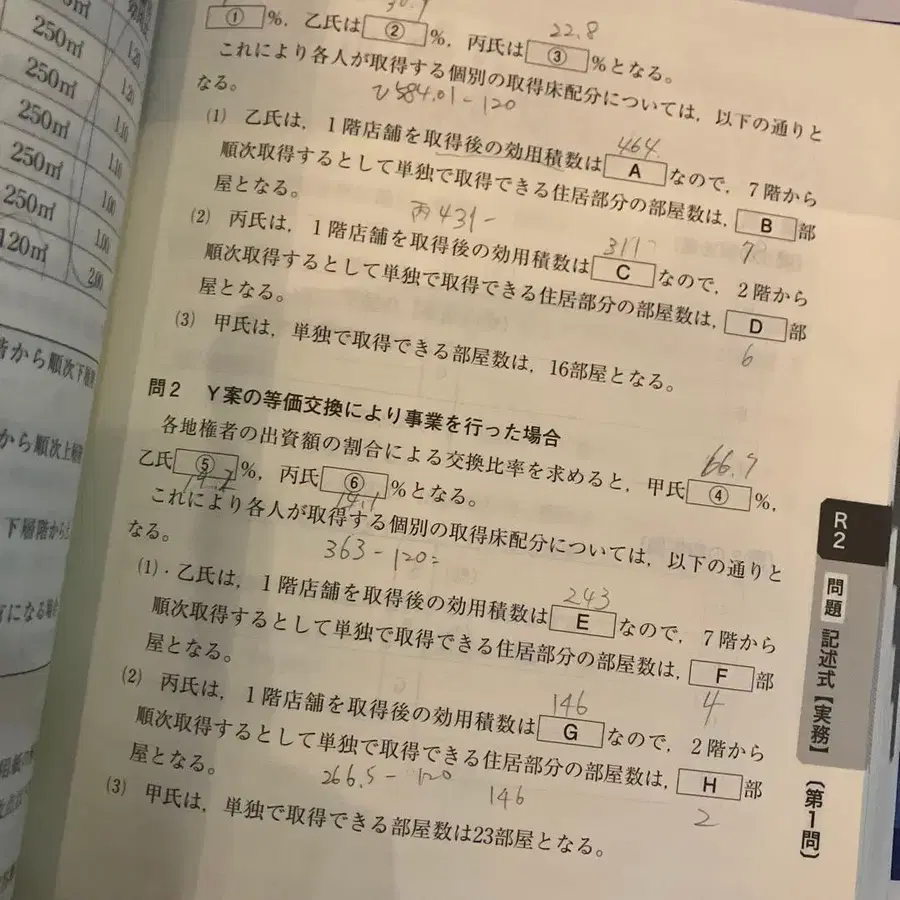 250㎡ 1.20
250㎡ 1.20
250㎡ 1.10
250㎡ 1.10
250㎡ 1.00
250㎡ 1.00
120㎡ 2.00
から順次下層階
から順次上層階
下層階から上
になる場合
22.8
① %，乙氏は ② %，丙氏は ③ %となる。
これにより各人が取得する個別の取得床配分については，以下の通りと
なる。
584.01-120
464.
(1) 乙氏は，1階店舗を取得後の効用積数は A なので，7階から
順次取得するとして単独で取得できる住居部分の部屋数は， B 部
屋となる。
丙431-
(2) 丙氏は，1階店舗を取得後の効用積数は C なので，2階から
順次取得するとして単独で取得できる住居部分の部屋数は， D 部
屋となる。
6
(3) 甲氏は，単独で取得できる部屋数は，16部屋となる。
問2 Y案の等価交換により事業を行った場合
66.7
各地権者の出資額の割合による交換比率を求めると，甲氏 ④ %，
乙氏 ⑤ %，丙氏 ⑥ %となる。
これにより各人が取得する個別の取得床配分については，以下の通りと
なる。
363-120=
243
(1)・乙氏は，1階店舗を取得後の効用積数は E なので，7階から
順次取得するとして単独で取得できる住居部分の部屋数は， F 部
屋となる。
4
146
(2) 丙氏は，1階店舗を取得後の効用積数は G なので，2階から
順次取得するとして単独で取得できる住居部分の部屋数は， H 部
屋となる。
266.5-120
146
2
(3) 甲氏は，単独で取得できる部屋数は23部屋となる。
R2
問題
記述式【実務】
（第1問）